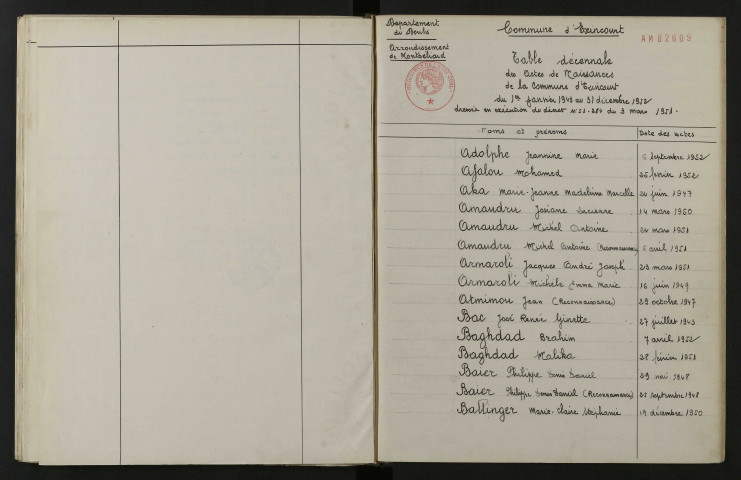 Département
du Doubs
Arrondissement
de Montbéliard
Commune d'Exincourt
AMD2609
Table décennale
des Actes de Naissances
de la Commune d'Exincourt
du 1er janvier 1943 au 31 décembre 1952
dressée en exécution du décret n° 51-284 du 3 mars 1951.
Noms et prénoms Date des actes
Adolphe Jeannine Marie 6 septembre 1952
Ajalou Mohamed 25 février 1952
Aka Marie-Jeanne Madeleine Marcelle 24 juin 1947
Amaudru Josiane Lucienne 14 mars 1950
Amaudru Michel Antoine 24 mars 1951
Amaudru Michel Antoine (Reconnaissance) 5 avril 1951
Armaroli Jacques André Joseph 23 mars 1951
Armaroli Michèle Emma Marie 16 juin 1949
Atmimou Jean (Reconnaissance) 29 octobre 1947
Bac José Renée Ginette 27 juillet 1943
Baghdad Brahim 7 avril 1952
Baghdad Malika 28 février 1951
Baier Philippe Denis Daniel 29 mai 1948
Baier Philippe Denis Daniel (Reconnaissance) 25 septembre 1948
Ballinger Marie-Claire Stéphanie 19 décembre 1950